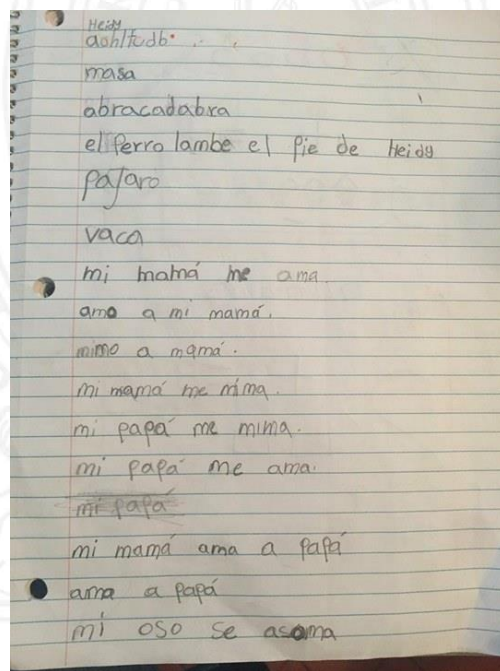 Heidy
aohltudb
masa
abracadabra
el perro lambe el pie de Heidy
pajaro
vaca
mi mamá me ama.
amo a mi mamá.
mimo a mamá.
mi mamá me mima.
mi papá me mima.
mi papá me ama.
mi papá
mi mamá ama a papá
ama a papá
mi oso se asoma